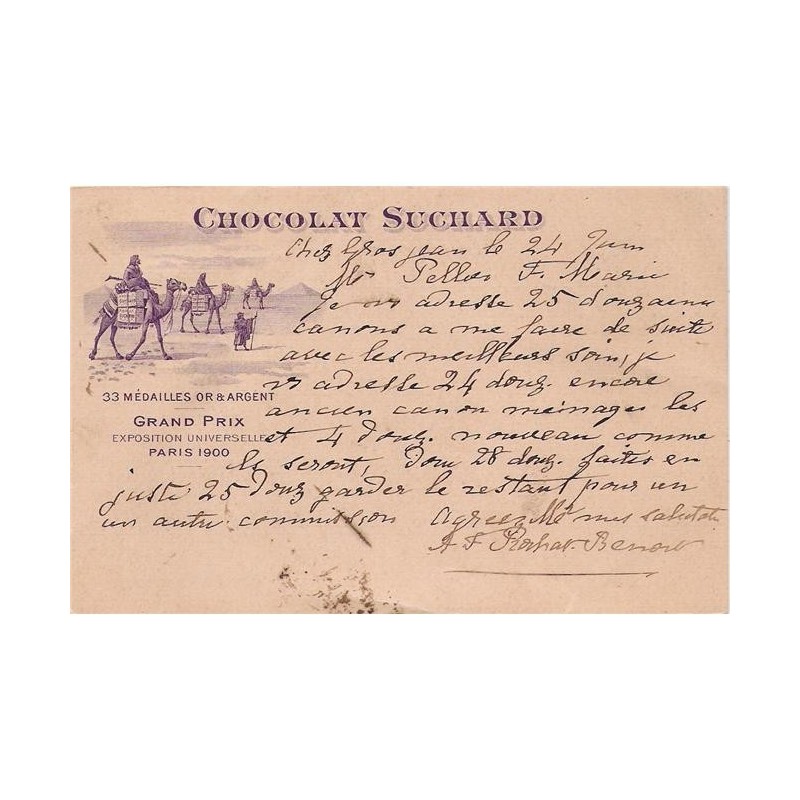 CHOCOLAT SUCHARD
Chez Grosjean le 24 Juin
Mr Pellos F. Marie
je vs adresse 25 douzaines
canons a me faire de suite
avec les meilleurs soin, je
vs adresse 24 douz. encore
ancien canon ménages les
et 4 douz. nouveau comme
ils seront, Donc 28 douz. faites en
juste 25 Douz garder le restant pour un
un autre commission agreez Mr mes salutat.
A F Rochat-Benoit
33 MÉDAILLES OR & ARGENT
GRAND PRIX
EXPOSITION UNIVERSELLE
PARIS 1900